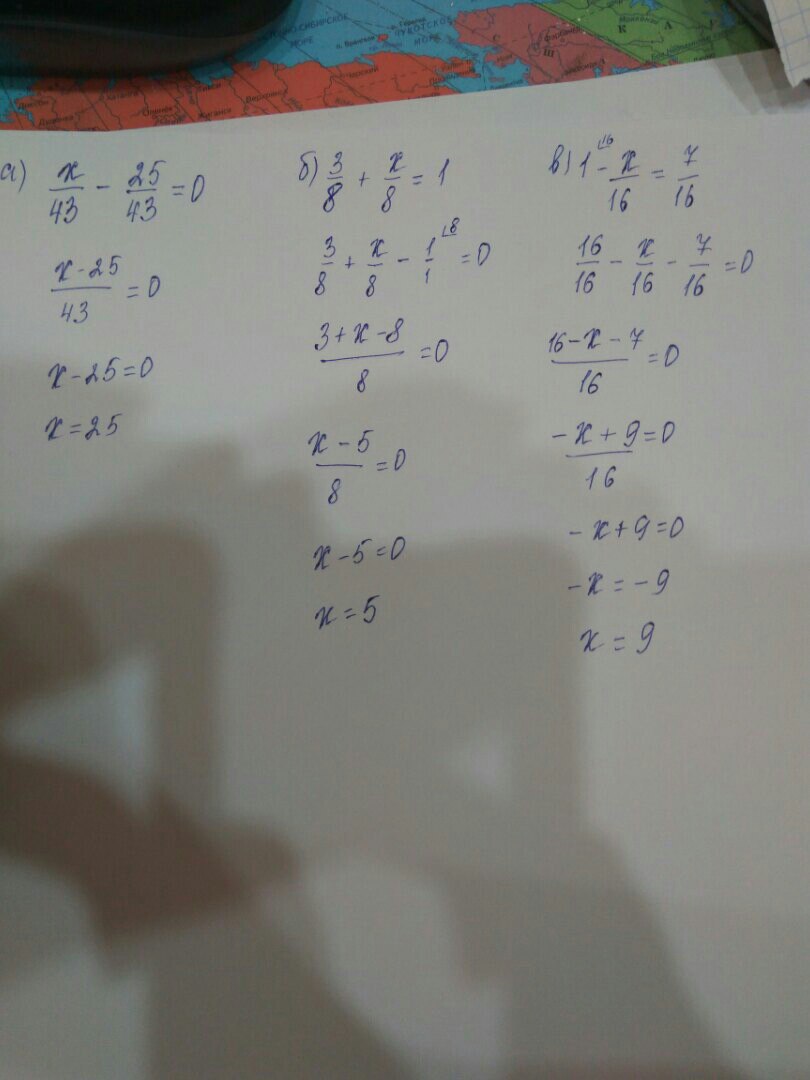 ЧУКОТСКОЕ
МОРЕ
МОРЕ
К А
Ш
а) x/43 - 25/43 = 0
(x - 25)/43 = 0
x - 25 = 0
x = 25
б) 3/8 + x/8 = 1
3/8 + x/8 - 1/1 ⌊8 = 0
(3 + x - 8)/8 = 0
(x - 5)/8 = 0
x - 5 = 0
x = 5
в) 1 ⌊16 - x/16 = 7/16
16/16 - x/16 - 7/16 = 0
(16 - x - 7)/16 = 0
(-x + 9)/16 = 0
-x + 9 = 0
-x = -9
x = 9